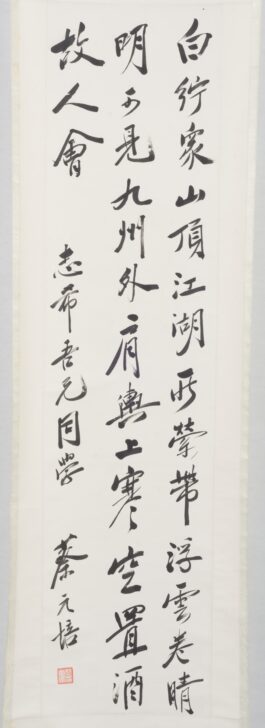 白紵眾山頂江湖所縈帶浮雲卷晴
明可見九州外肩輿上寒空置酒
故人會
志希吾兄同學
蔡元培